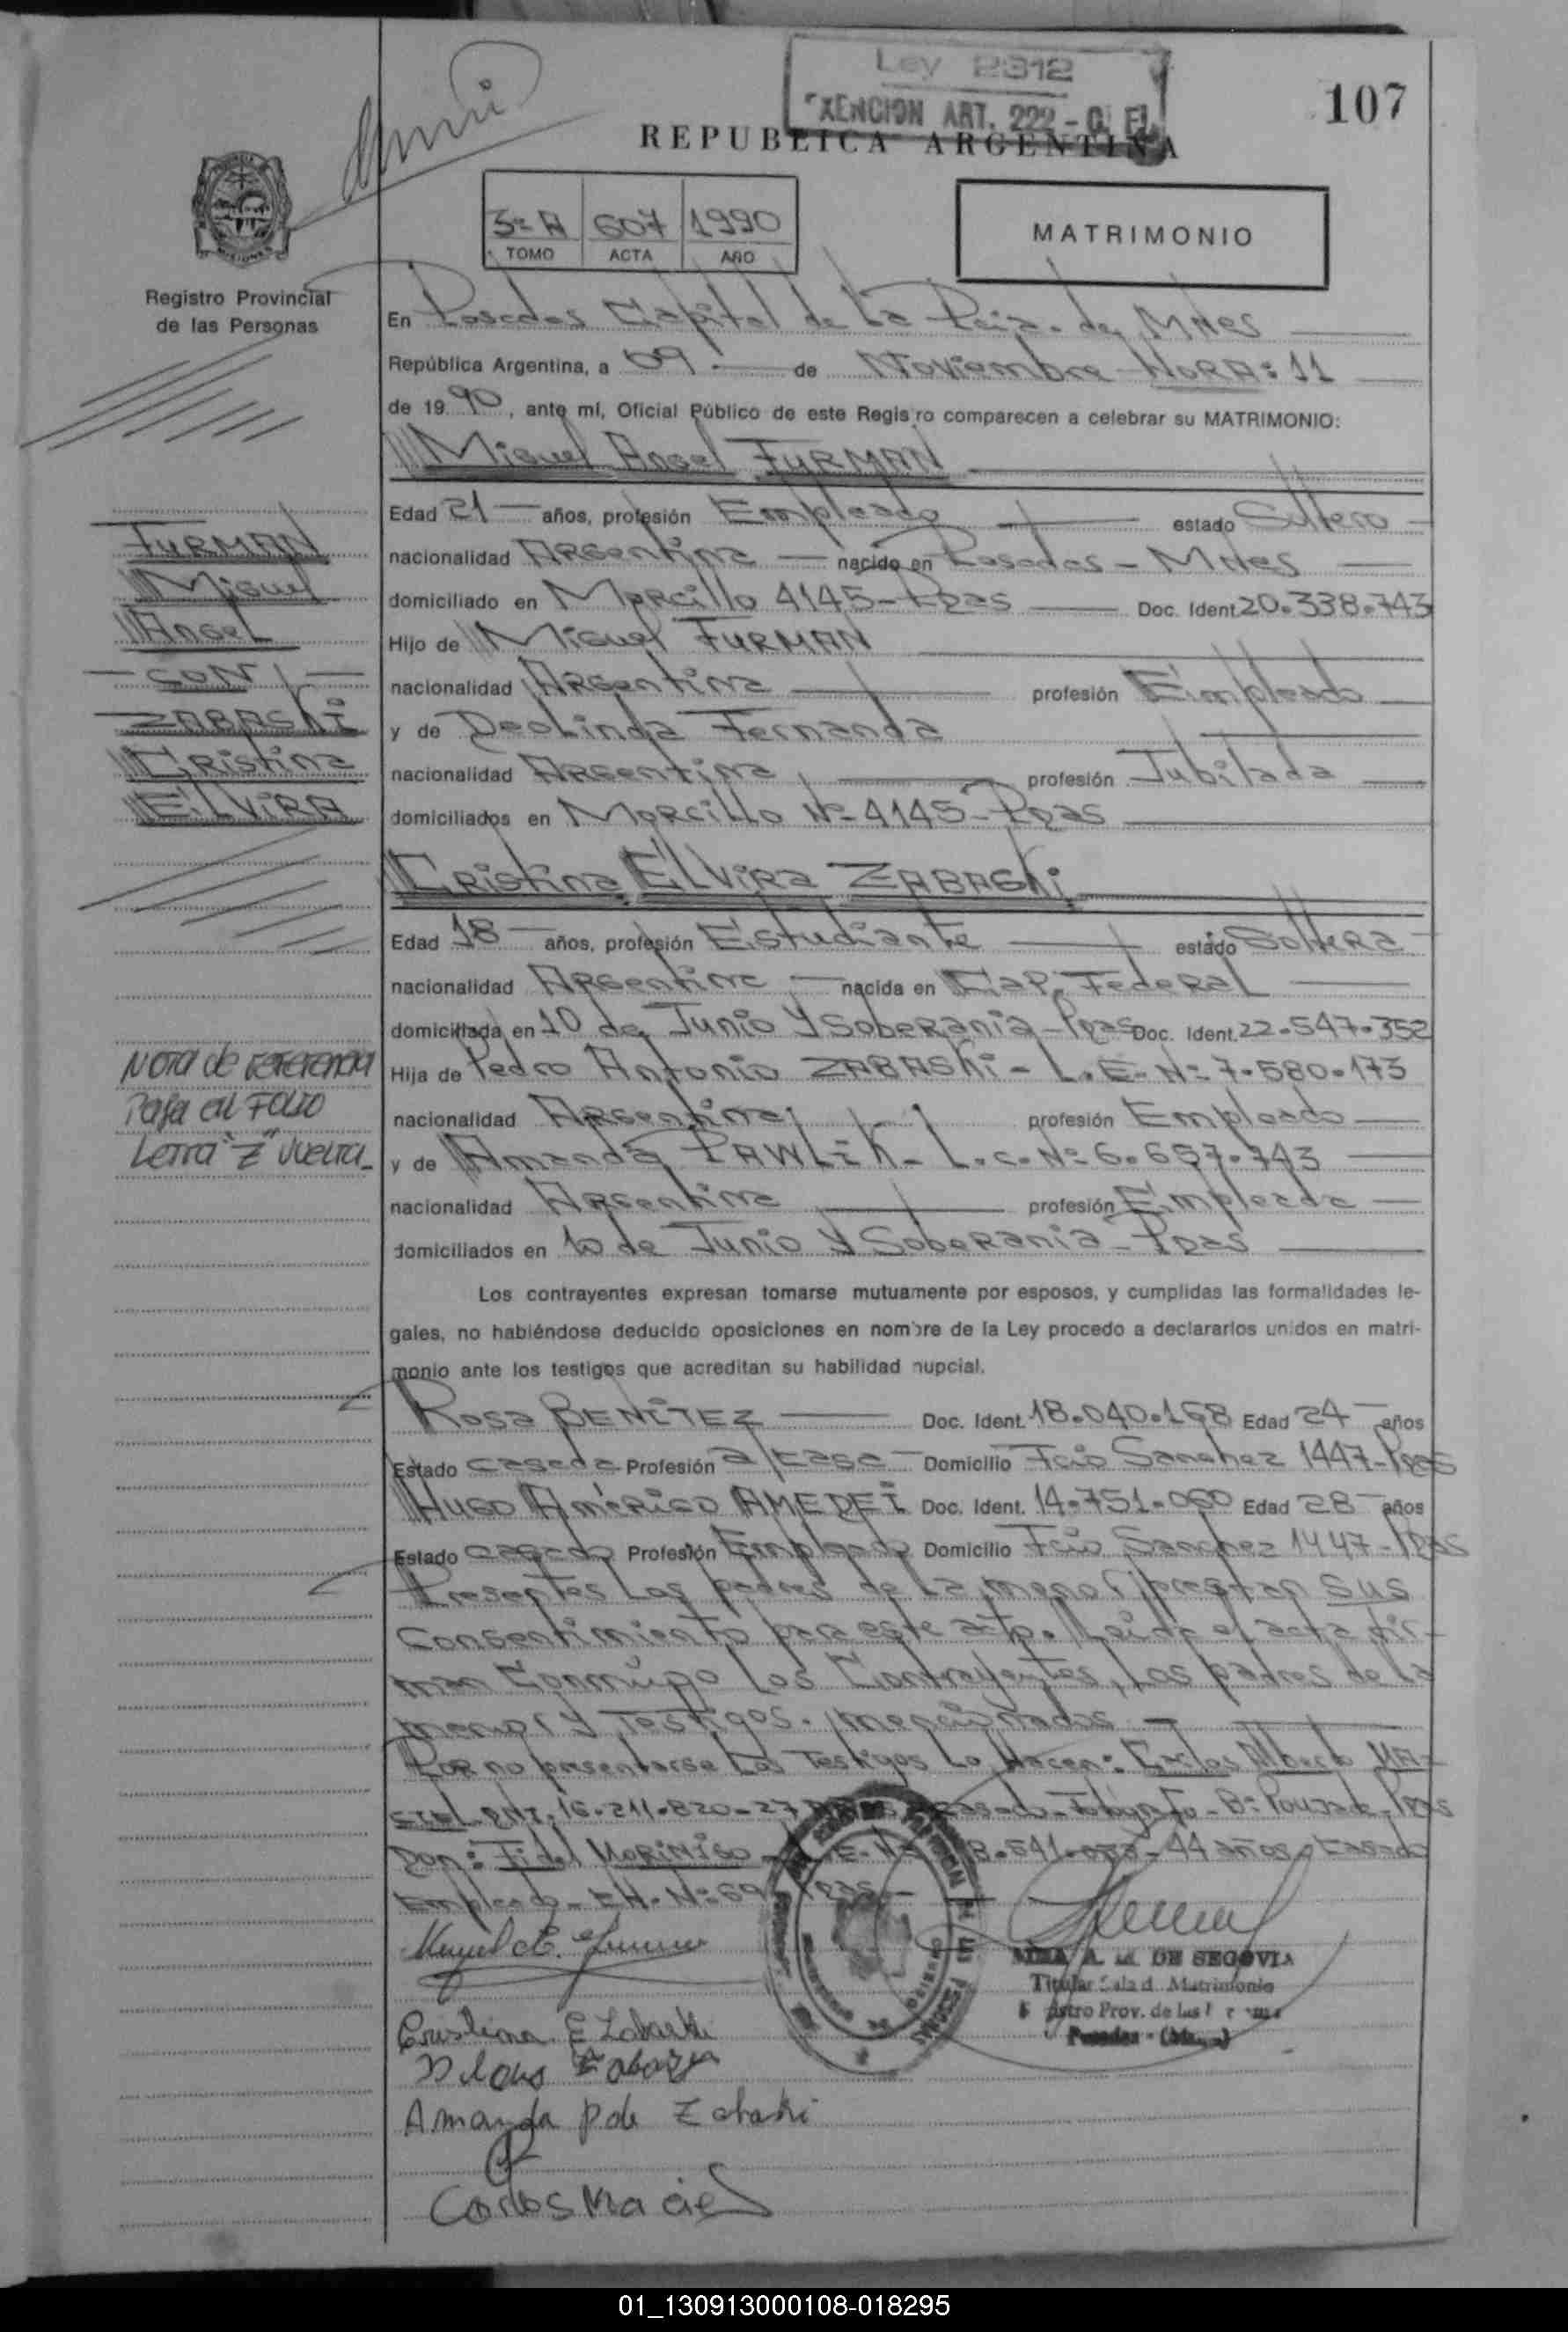 Ley 2312
EXENCION ART. 222 - C. F.
107
REPUBLICA ARGENTINA
3º A 607 1990
TOMO ACTA AÑO
MATRIMONIO
MISIONES
Registro Provincial
de las Personas
En Posadas Capital de La Pcia. de Mnes
República Argentina, a 09 de Noviembre HORA: 11
de 1990, ante mí, Oficial Público de este Registro comparecen a celebrar su MATRIMONIO:
Miguel Angel FURMAN
Edad 21 años, profesión Empleado estado Soltero
nacionalidad Argentina nacido en Posadas - Mnes
domiciliado en Morcillo 4145 - Pdas Doc. Ident. 20.338.743
Hijo de Miguel FURMAN
nacionalidad Argentina profesión Empleado
y de Deolinda Fernanda
nacionalidad Argentina profesión Jubilada
domiciliados en Morcillo Nº 4145 - Pdas
FURMAN
Miguel
Angel
- CON -
ZABASKI
Cristina
ELVIRA
Cristina ELVIRA ZABASKI
Edad 18 años, profesión Estudiante estado Soltera
nacionalidad Argentina nacida en Cap. Federal
domiciliada en 10 de Junio y Soberania - Pdas Doc. Ident. 22.547.352
Hija de Pedro Antonio ZABASKI - L.E. Nº 7.580.173
nacionalidad Argentina profesión Empleado
y de Amanda PAWLIK - L.C. Nº 6.657.743
nacionalidad Argentina profesión Empleada
domiciliados en 10 de Junio y Soberania - Pdas
Nota de referencia
Pasa al FOLIO
Letra "Z" vuelta
Los contrayentes expresan tomarse mutuamente por esposos, y cumplidas las formalidades le-
gales, no habiéndose deducido oposiciones en nombre de la Ley procedo a declararlos unidos en matri-
monio ante los testigos que acreditan su habilidad nupcial.
Rosa BENITEZ Doc. Ident. 18.040.168 Edad 24 años
Estado casada Profesión a/casa Domicilio Fcio Sanchez 1447 - Pdas
HUGO AMÉRICO AMEDEI Doc. Ident. 14.751.060 Edad 28 años
Estado casado Profesión Empleado Domicilio Fcio Sanchez 1447 - Pdas
Presentes Los padres de La menor prestan sus
Consentimiento para este acto. Leida el acta fir-
man Conmigo Los Contrayentes, Los padres de la
menor y Testigos mencionados
Por no presentarse Los Testigos Lo Hacen: Carlos Alberto MA-
CIEL DNI. 16.211.820 - 27 casado - B: Poujade - Pdas
Don: Fidel MORINIGO 44 años casado
Empleado - CH. Nº 69 Pdas
A. M. DE SEGOVIA
Titular Sala d. Matrimonio
Registro Prov. de las Personas
Posadas - (Mnes)
Cristina E Zabaski
Amanda P de Zabaski
Carlos Maciel
01_130913000108-018295